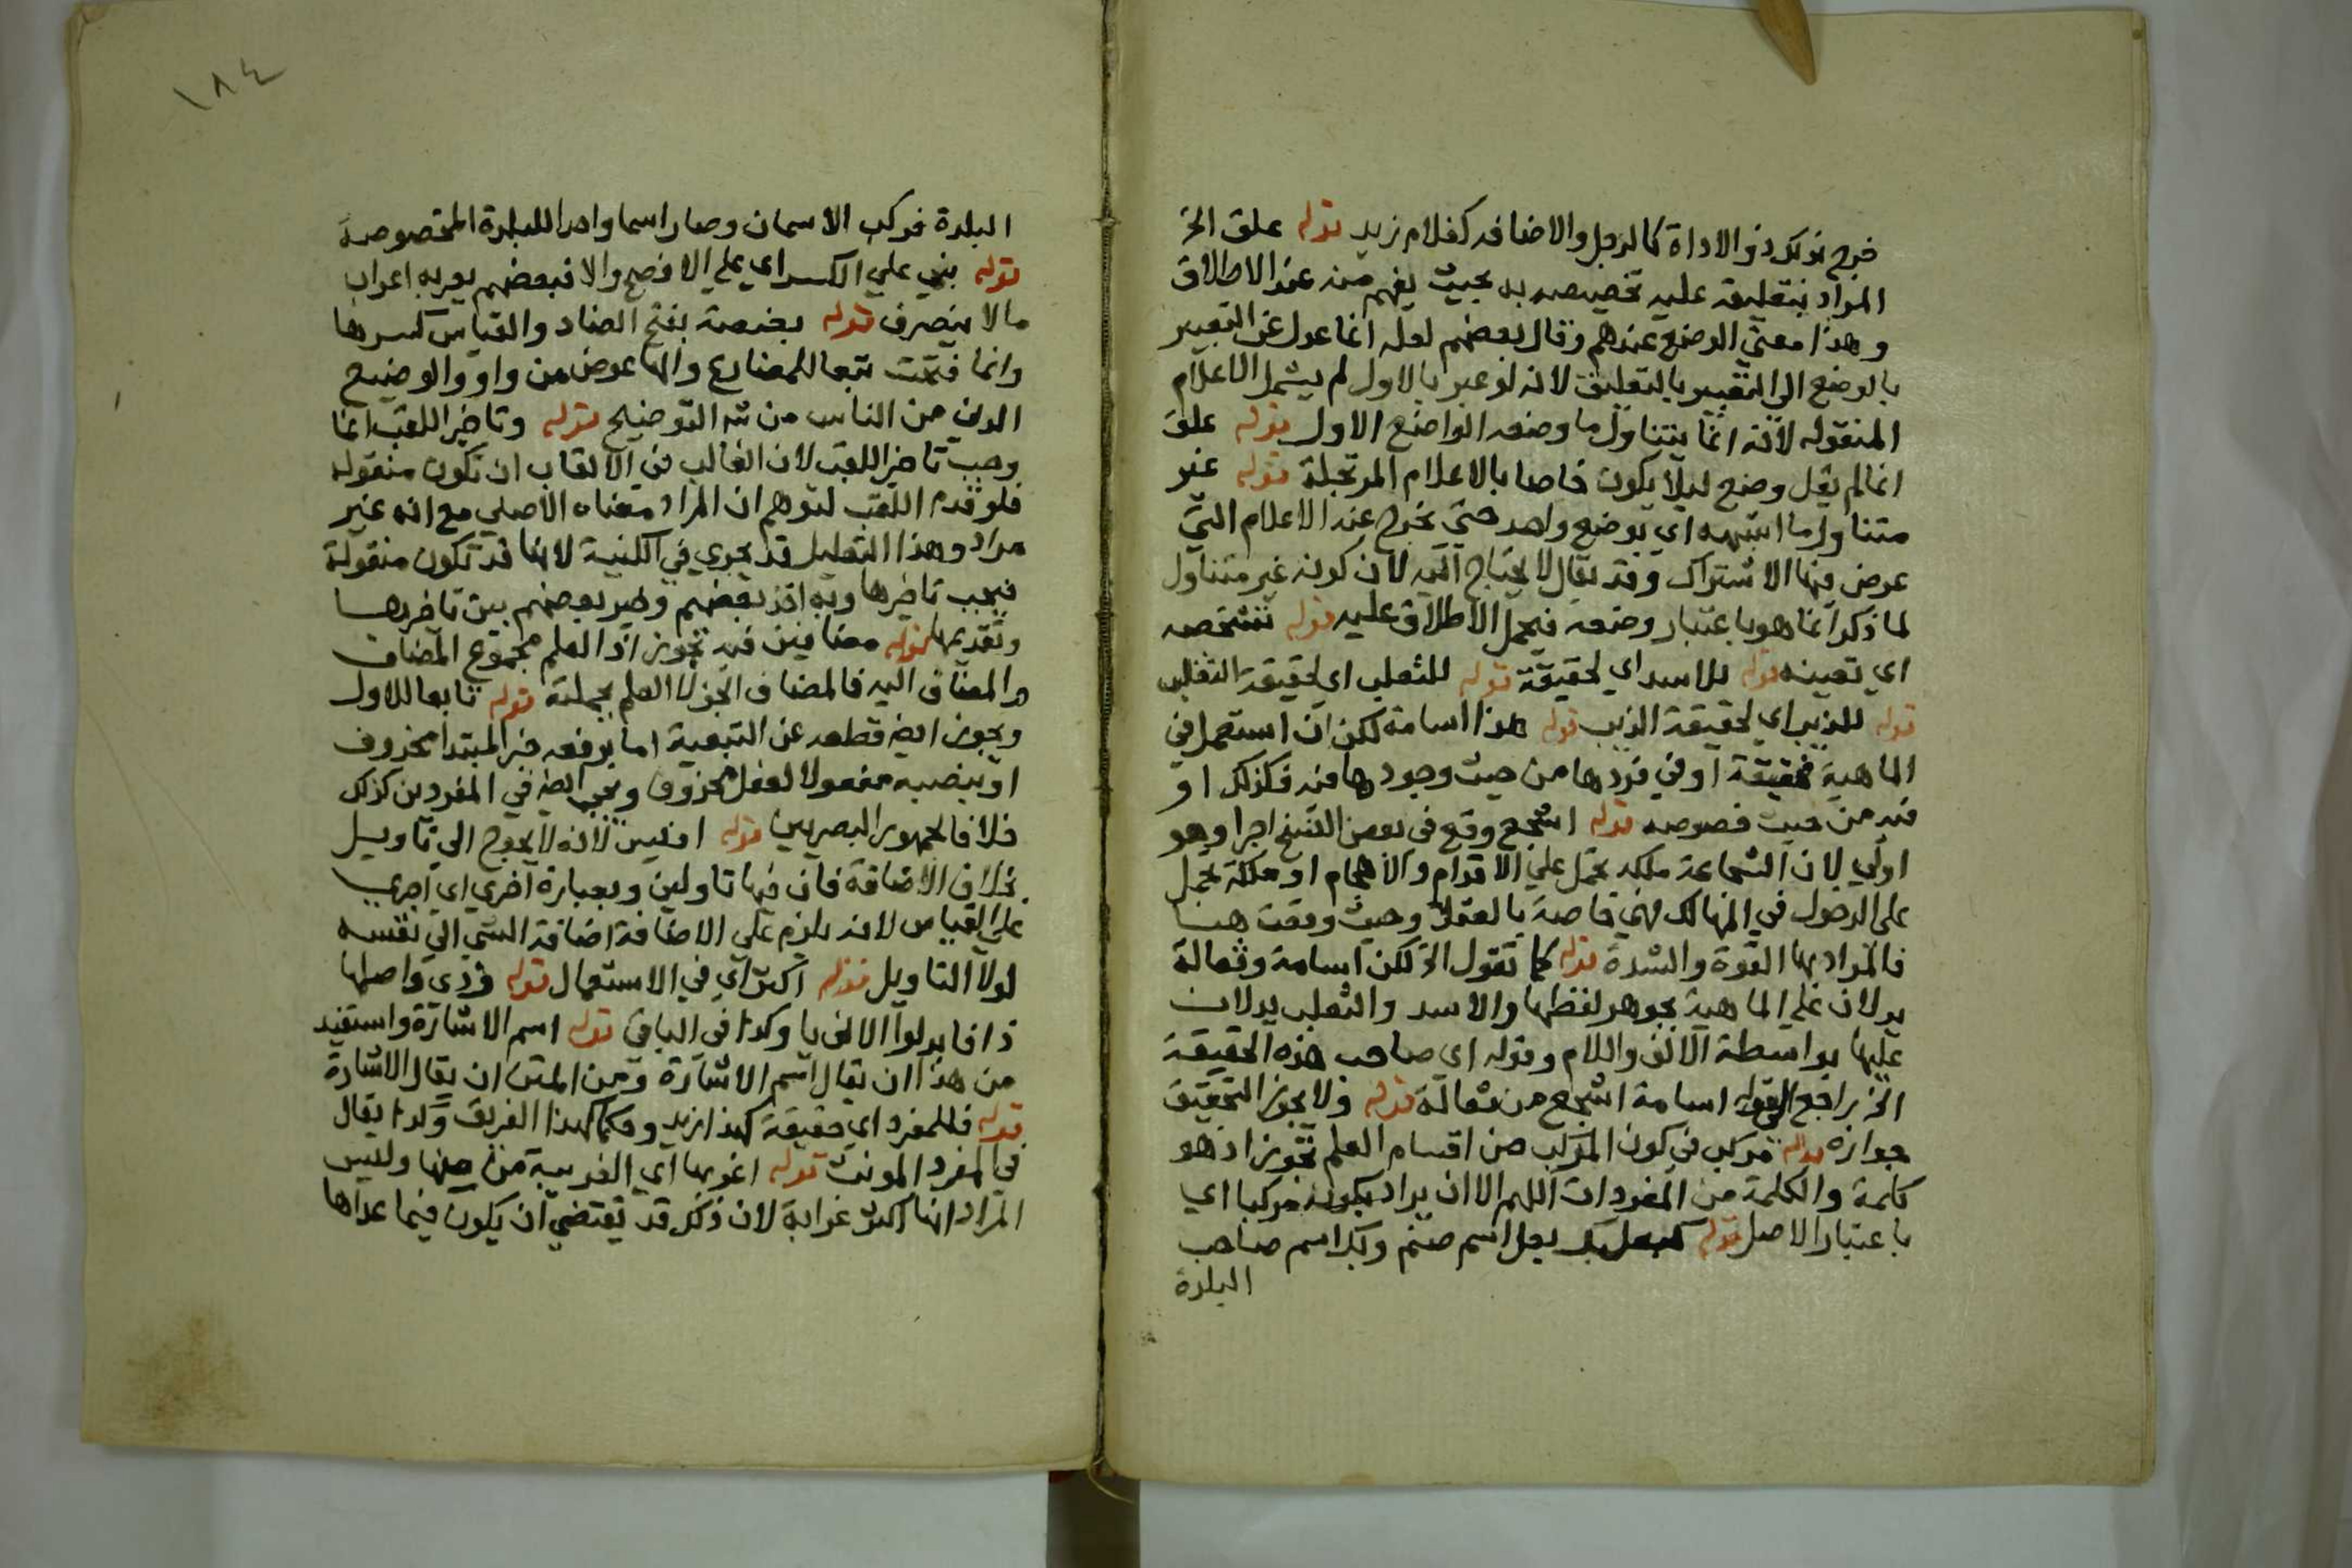 خرج بذلك ذو الاداة كالرجل والاضافه كغلام زيد قوله علق الخ
المراد بتعليقه عليه تخصيصه به بحيث يفهم منه عند الاطلاق
وهذا معني الوضع عندهم وقال بعضهم لعله انما عدل عن التعبير
بالوضع الي التعبير بالتعليق لانه لو عبر بالاول لم يشمل الاعلام
المنقوله لانه انما يتناول ما وضعه الواضع الاول قوله علق
انما لم يقل وضع ليلا يكون خاصا بالاعلام المرتجلة قوله غير
متناول ما اشبهه اي بوضع واحد حتي يخرج عنه الاعلام التي
عرض فيها الاشتراك وقد يقال لا يحتاج اليه لان كونه غير متناول
لما ذكر انما هو باعتبار وضعه فيحمل الاطلاق عليه قوله تشخصه
اي تعينه قوله للاسد اي لحقيقة قوله للثعلب اي لحقيقة الثعلب
قوله للذيب اي لحقيقة الذيب قوله هذا اسامة لكن ان استعمل في
الماهية فحقيقة او في فردها من حيث وجودها فيه فكذلك او
فيه من حيث خصوصه قوله اشجع وقع في بعض النسخ اجرا وهو
اولي لان الشجاعة ملكه تحمل علي الاقدام والاهجام او ملكة تحمل
علي الدخول في المهالك فهي خاصة بالعقلا وحيث وقعت هنا
فالمراد بها القوة والشدة قوله كما تقول الخ لكن اسامة وثعالة
يدلان علي الماهية بجوهر لفظها والاسد والثعلب يدلان
عليها بواسطة الالف واللام وقوله اي صاحب هذه الحقيقة
الخ راجع لقوله اسامة اشجع من ثعالة قوله ولا يجوز التحقيق
جوازه قوله مركب في كون المركب من اقسام العلم تجوز اذ هو
كلمة والكلمة من المفردات اللهم الا ان يراد بكونه مركبا اي
باعتبار الاصل قوله كبعلبك بعل اسم صنم وبك اسم صاحب
البلدة
١٨٤
البلدة فركب الاسمان وصار اسما واحدا للبلدة المخصوصة
قوله بني علي الكسر اي علي الافصح والا فبعضهم يعربه اعراب
مالا ينصرف قوله بضعة بفتح الضاد والقياس كسرها
وانما فتحت تبعا للمضارع والها عوض من واو والوضيع
الدني من الناس قوله وتاخير اللقب انما
وجب تاخير اللقب لان الغالب في الالقاب ان تكون منقوله
فلو قدم اللقب لتوهم ان المراد معناه الاصلي مع انه غير
مراد وهذا التعليل قد يجري في الكنية لانها قد تكون منقولة
فيجب تاخيرها وبه اخذ بعضهم وخير بعضهم بين تاخيرها
وتقديمها قوله مضافين فيه تجوز اذ العلم مجموع المضاف
والمضاف اليه فالمضاف جزء العلم بجملته قوله تابعا للاول
ويجوز ايضا قطعه عن التبعية اما برفعه خبر المبتدا محذوف
او بنصبه مفعولا لفعل محذوف ويجب ايضا في المفردين كذلك
خلافا لجمهور البصريين قوله اقيس لانه لا يحوج الي تاويل
بخلاف الاضافة فان فيها تاولين وبعبارة اخري اي اجري
علي القياس لانه يلزم علي الاضافة اضافة الشي الي نفسه
لولا التاويل قوله اكثر اي في الاستعمال قوله وذي واصلها
ذا فابدلوا الالف يا وكذا في الباقي قوله اسم الاشارة واستفيد
من هذا ان يقال اسم الاشارة ومن المتن ان يقال الاشارة
قوله فللمفرد اي حقيقة كهذا زيد وحكما كهذا الفريق وكذا يقال
في المفرد المونث قوله اغربها اي الغريبة من بينها وليس
المراد انها اكثر غرابة لان ذلك قد يقتضي ان يكون فيما عداها